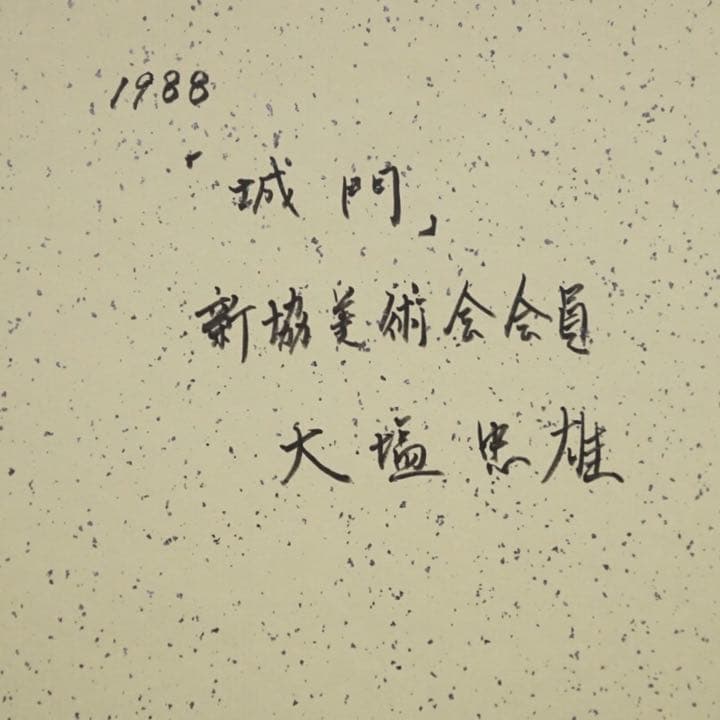 1988
「城門」
新協美術会会員
大塩忠雄